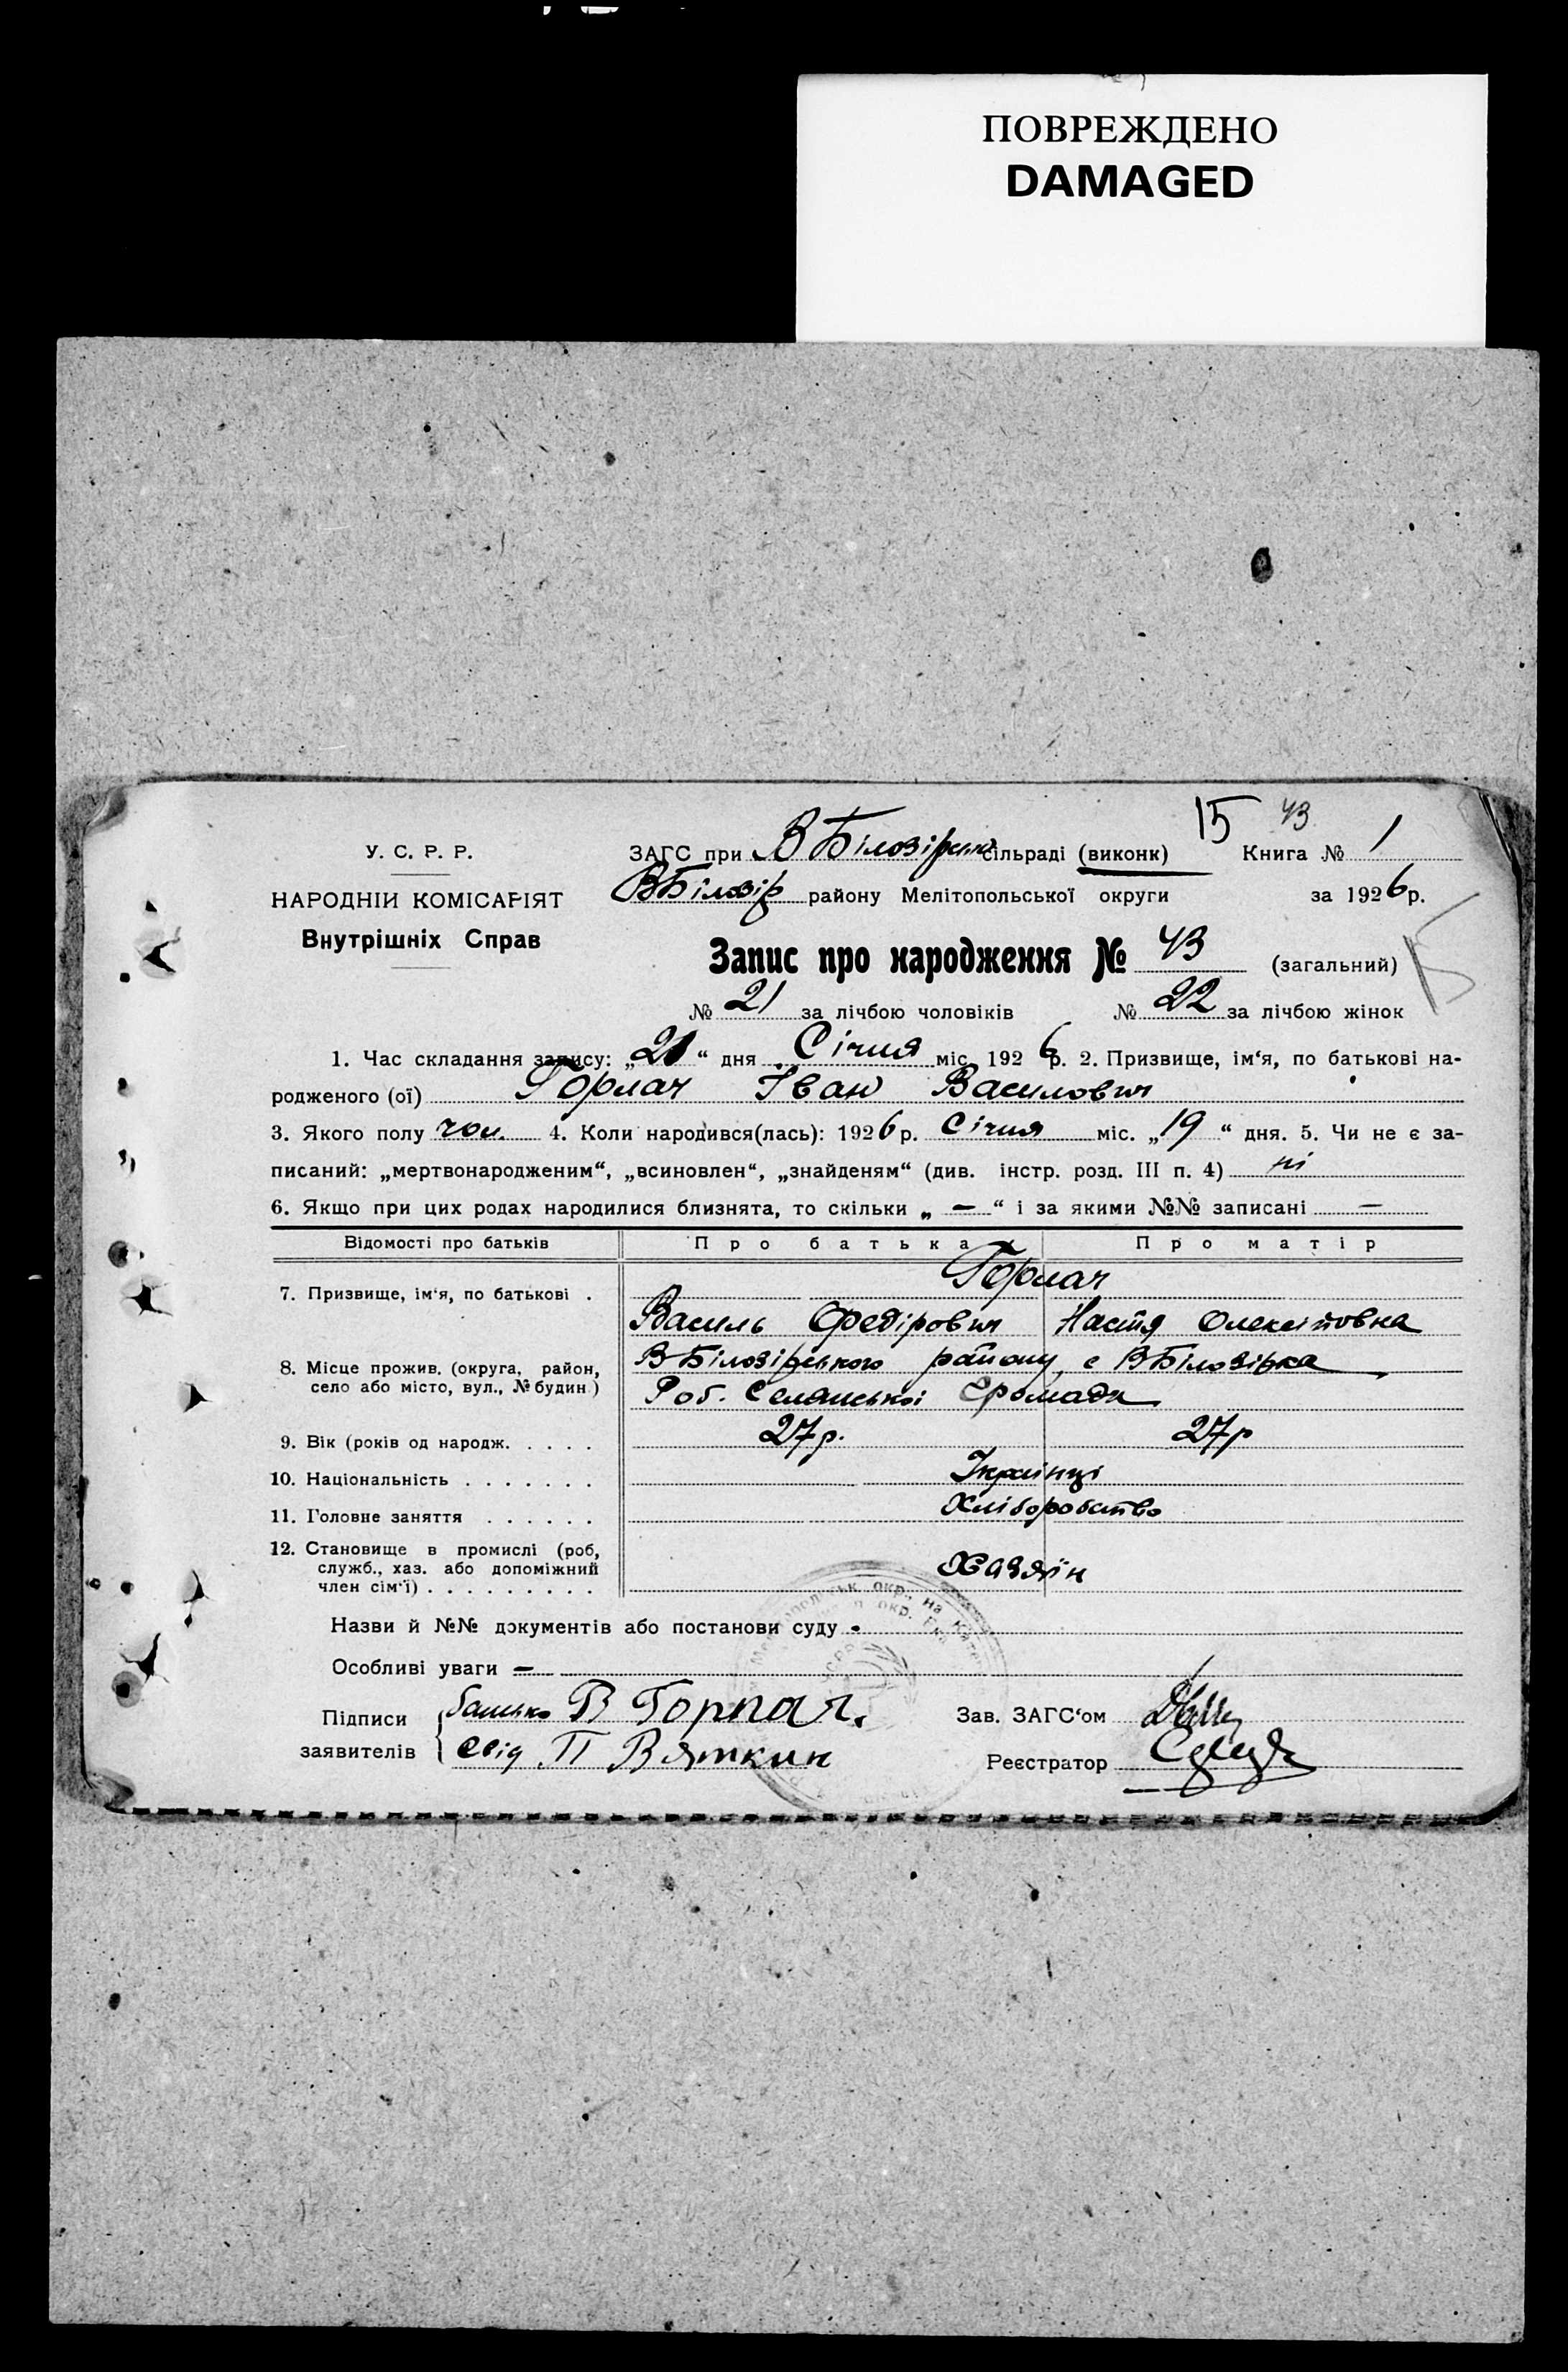 ПОВРЕЖДЕНО
DAMAGED
15 43
У. С. Р. Р.
НАРОДНІЙ КОМІСАРІЯТ
Внутрішніх Справ
ЗАГС при В Білозірській сільраді (виконк) Книга № 1
ВБілозір району Мелітопольської округи за 1926 р.
Запис про народження № 43 (загальний)
15
№ 21 за лічбою чоловіків № 22 за лічбою жінок
1. Час складання запису: „21“ дня Січня міс. 1926 р. 2. Призвище, ім‘я, по батькові на-
родженого (ої) Горлач Іван Васильович
3. Якого полу чол. 4. Коли народився(лась): 1926 р. Січня міс. „19“ дня. 5. Чи не є за-
писаний: „мертвонародженим“, „всиновлен“, „знайденям“ (див. інстр. розд. III п. 4) ні
6. Якщо при цих родах народилися близнята, то скільки „ — “ і за якими №№ записані —
Відомості про батьків Про батька Про матір
7. Призвище, ім‘я, по батькові . Горлач
Василь Федірович Настя Олексіївна
8. Місце прожив. (округа, район,
село або місто, вул., № будин.)
ВБілозірського району с ВБілозірка
Роб. Селянської Громади
9. Вік (років од народж. . . . . 27 р. 27 р
10. Національність . . . . . . . Українці
11. Головне заняття . . . . . . Хліборобство
12. Становище в промислі (роб,
служб., хаз. або допоміжний
член сім‘ї) . . . . . . . . . Хазяїн
Назви й №№ документів або постанови суду
Особливі уваги —
Підписи
заявителів
батько В Горлач.
свід П Вяткин
Зав. ЗАГС‘ом
Реєстратор